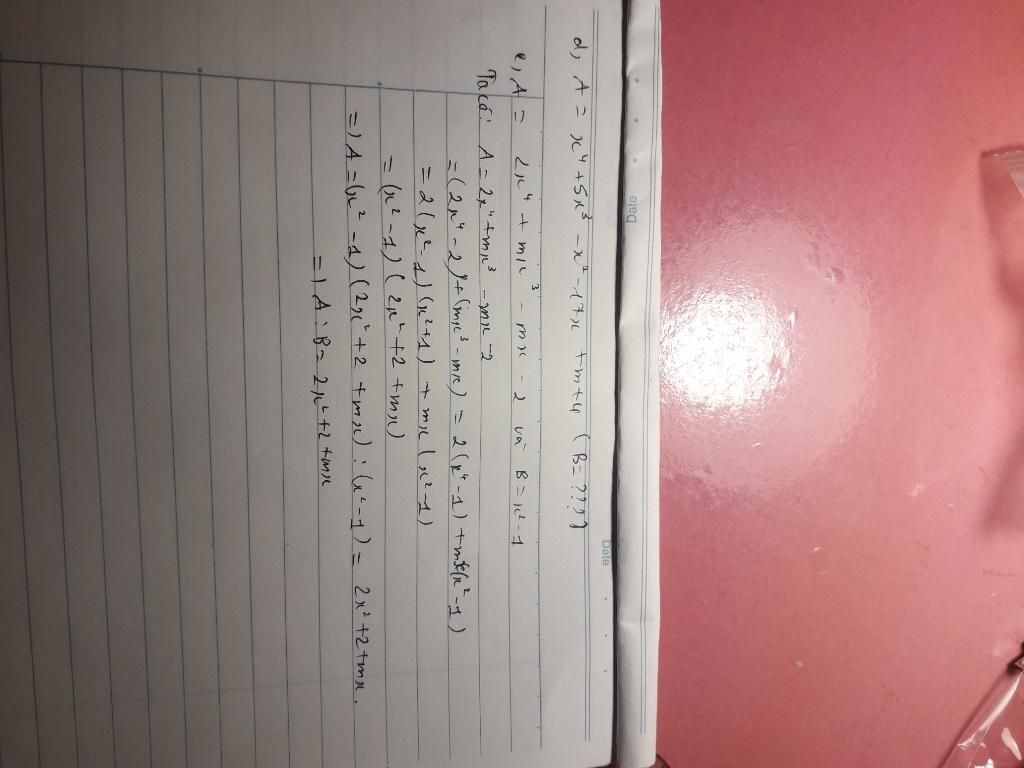 Date
Date
d, A = x⁴ + 5x³ - x² - 17x + m + 4 (B = ???)
e, A = 2x⁴ + mx³ - mx - 2 và B = x² - 1
Ta có: A = 2x⁴ + mx³ - mx - 2
= (2x⁴ - 2) + (mx³ - mx) = 2(x⁴ - 1) + mx(x² - 1)
= 2(x² - 1)(x² + 1) + mx(x² - 1)
= (x² - 1)(2x² + 2 + mx)
=) A = (x² - 1)(2x² + 2 + mx) : (x² - 1) = 2x² + 2 + mx.
=) A : B = 2x² + 2 + mx